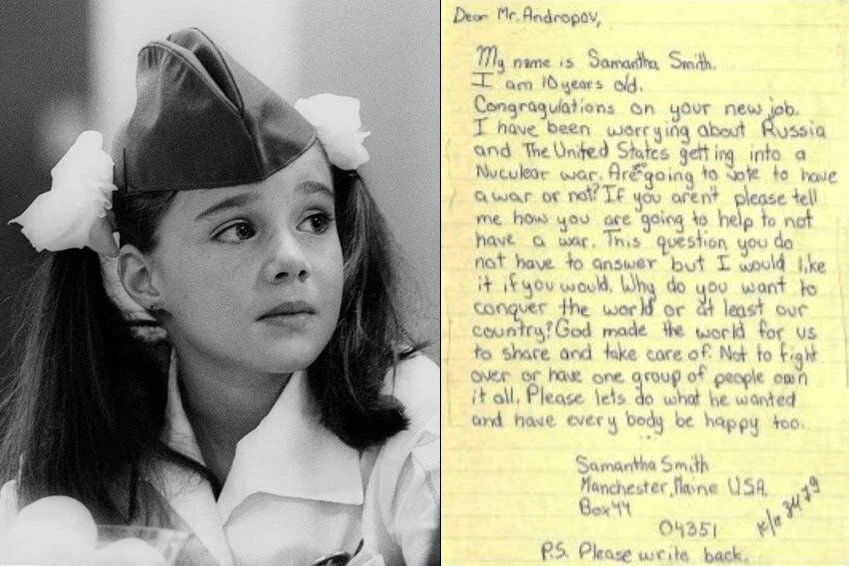 Dear Mr. Andropov,
My name is Samantha Smith.
I am 10 years old.
Congragulations on your new job.
I have been worrying about Russia
and The United States getting into a
Nuculear war. Are going to vote to have
a war or not? If you aren't please tell
me how you are going to help to not
have a war. This question you do
not have to answer but I would like
it if you would. Why do you want to
conquer the world or at least our
country? God made the world for us
to share and take care of. Not to fight
over or have one group of people own
it all. Please lets do what he wanted
and have every body be happy too.
Samantha Smith
Manchester, Maine USA.
Box 44
04351
P.S. Please write back.